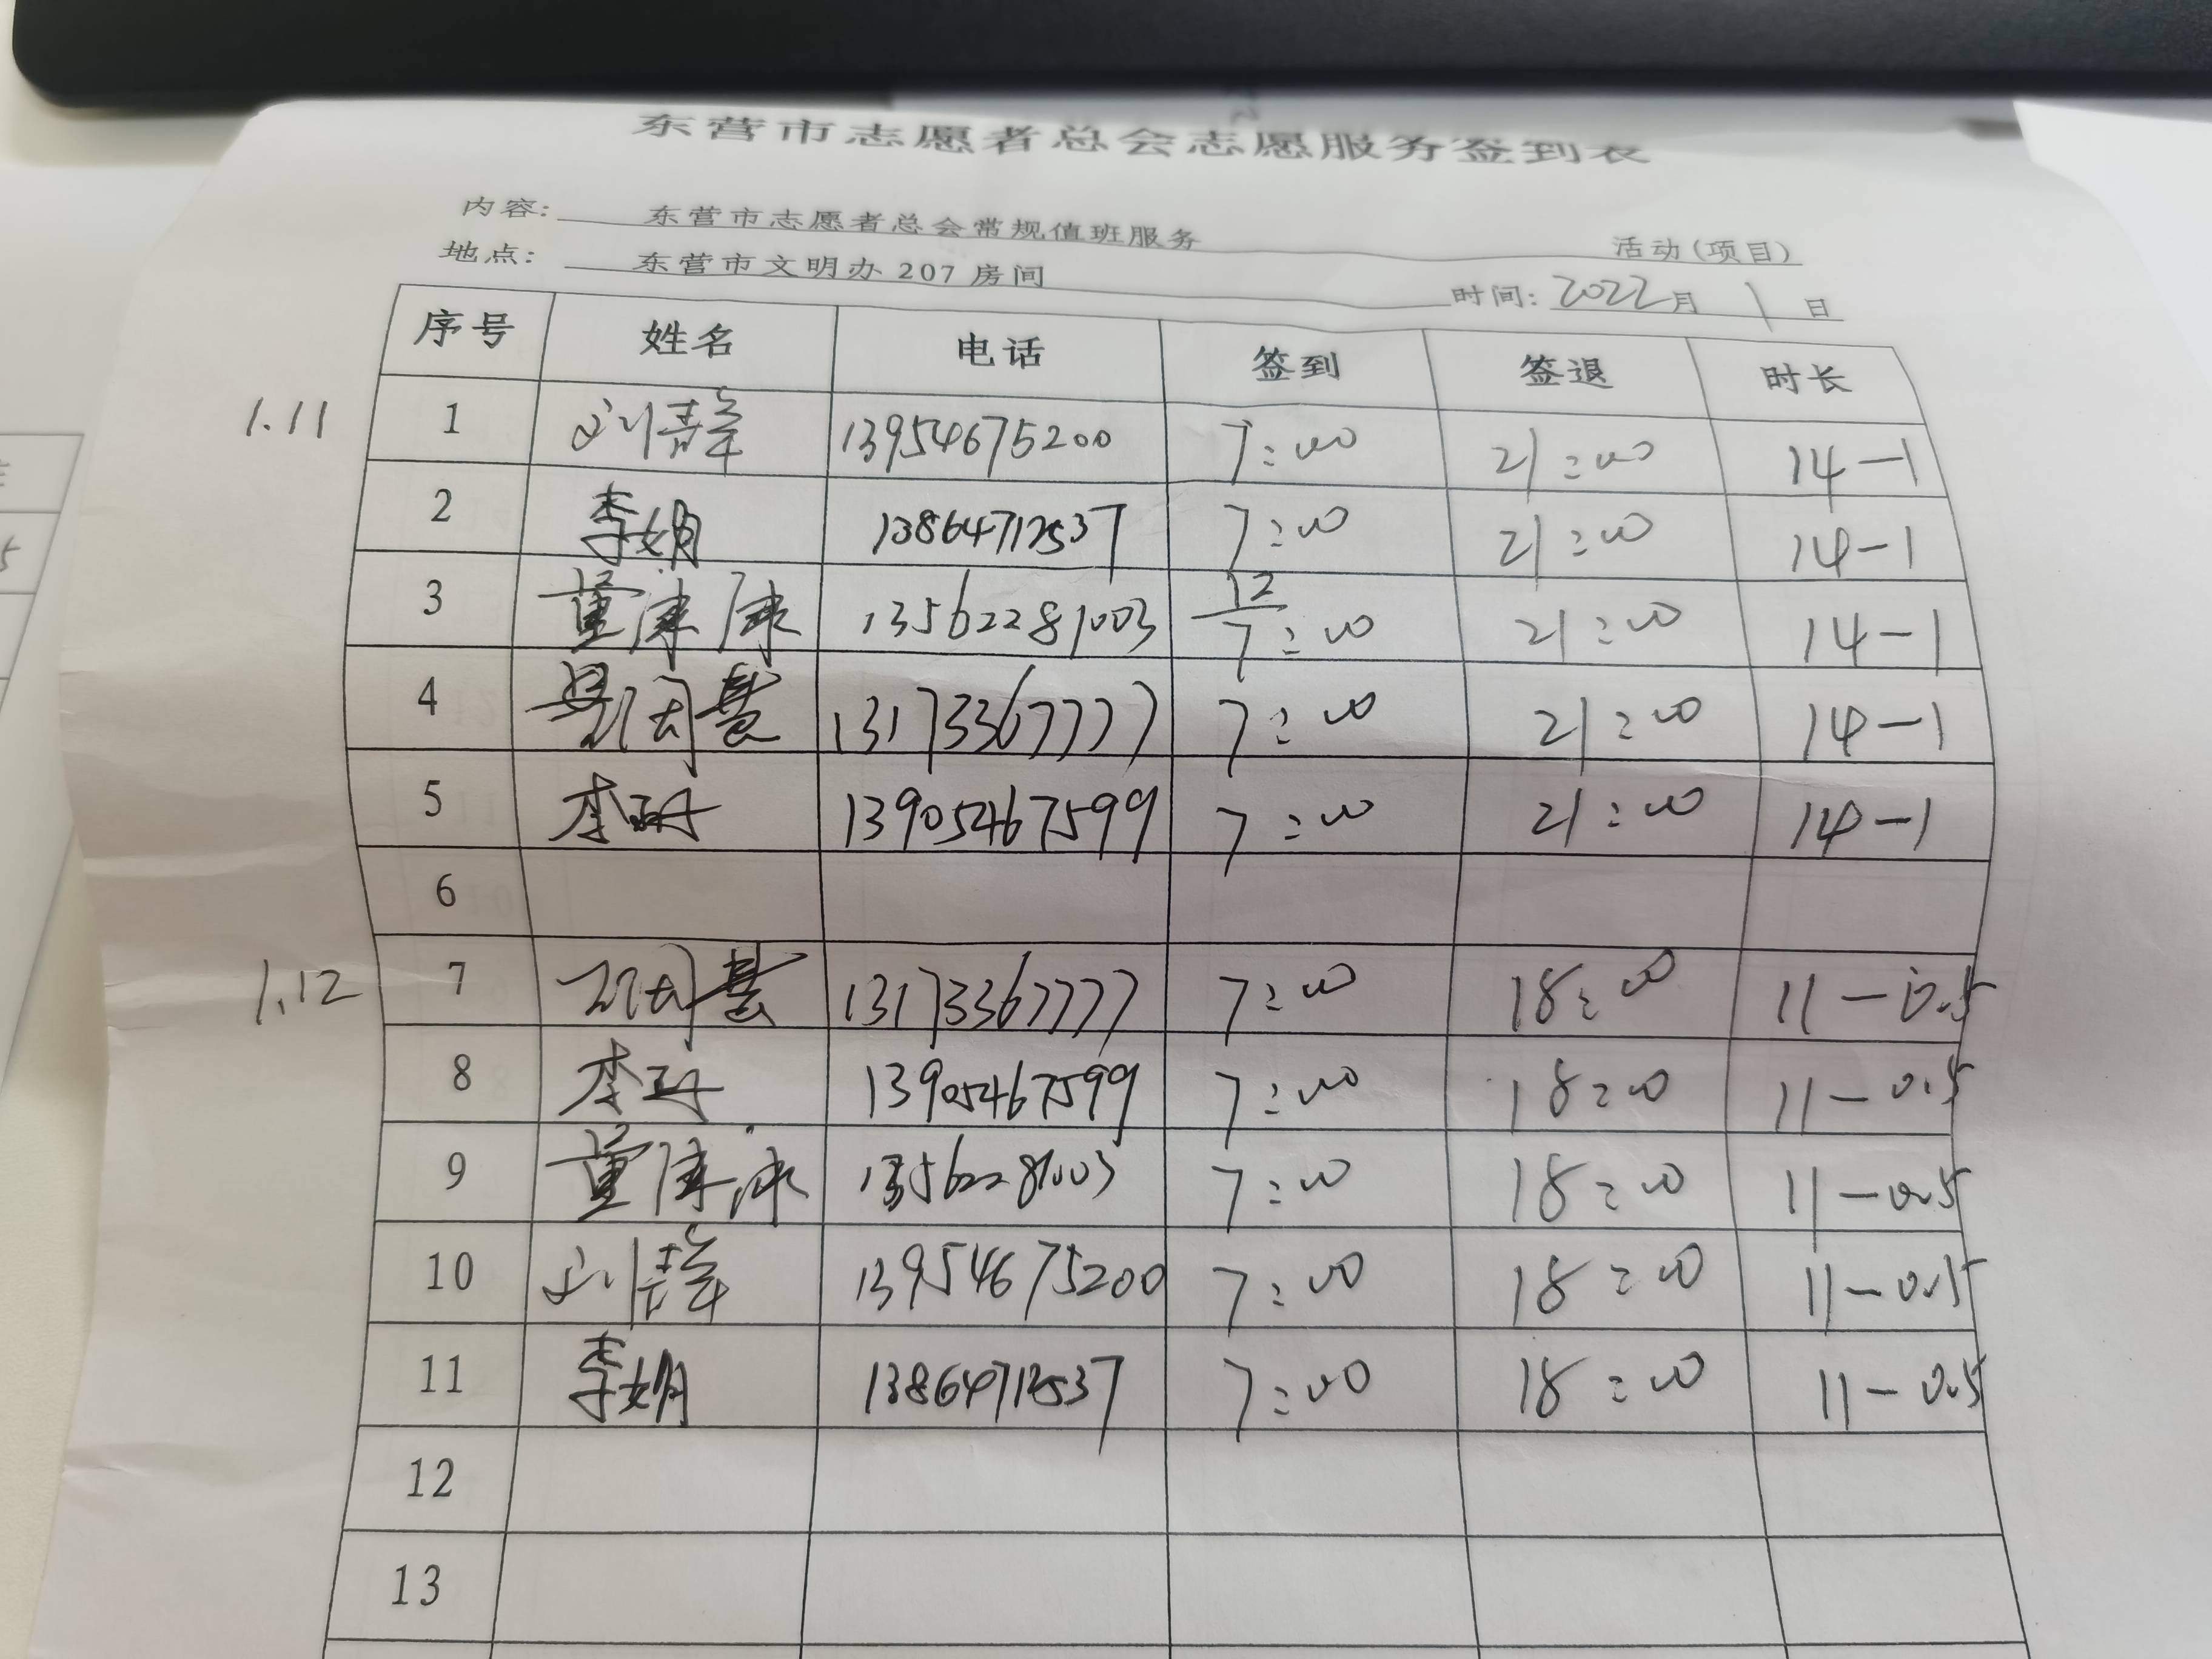 东营市志愿者总会志愿服务签到表
内容: 东营市志愿者总会常规值班服务 活动(项目)
地点: 东营市文明办 207 房间 时间: 2022月 1 日
序号 姓名 电话 签到 签退 时长
1.11 1 刘 13954675200 7:00 21:00 14-1
2 李娟 13864712537 7:00 21:00 14-1
3 董 13562281003 12 7:00 21:00 14-1
4 13173367777 7:00 21:00 14-1
5 李 13905467599 7:00 21:00 14-1
6
1.12 7 13173367777 7:00 18:00 11-0.5
8 李 13905467599 7:00 18:00 11-0.5
9 董 13562281003 7:00 18:00 11-0.5
10 刘 13954675200 7:00 18:00 11-0.5
11 李娟 13864712537 7:00 18:00 11-0.5
12
13